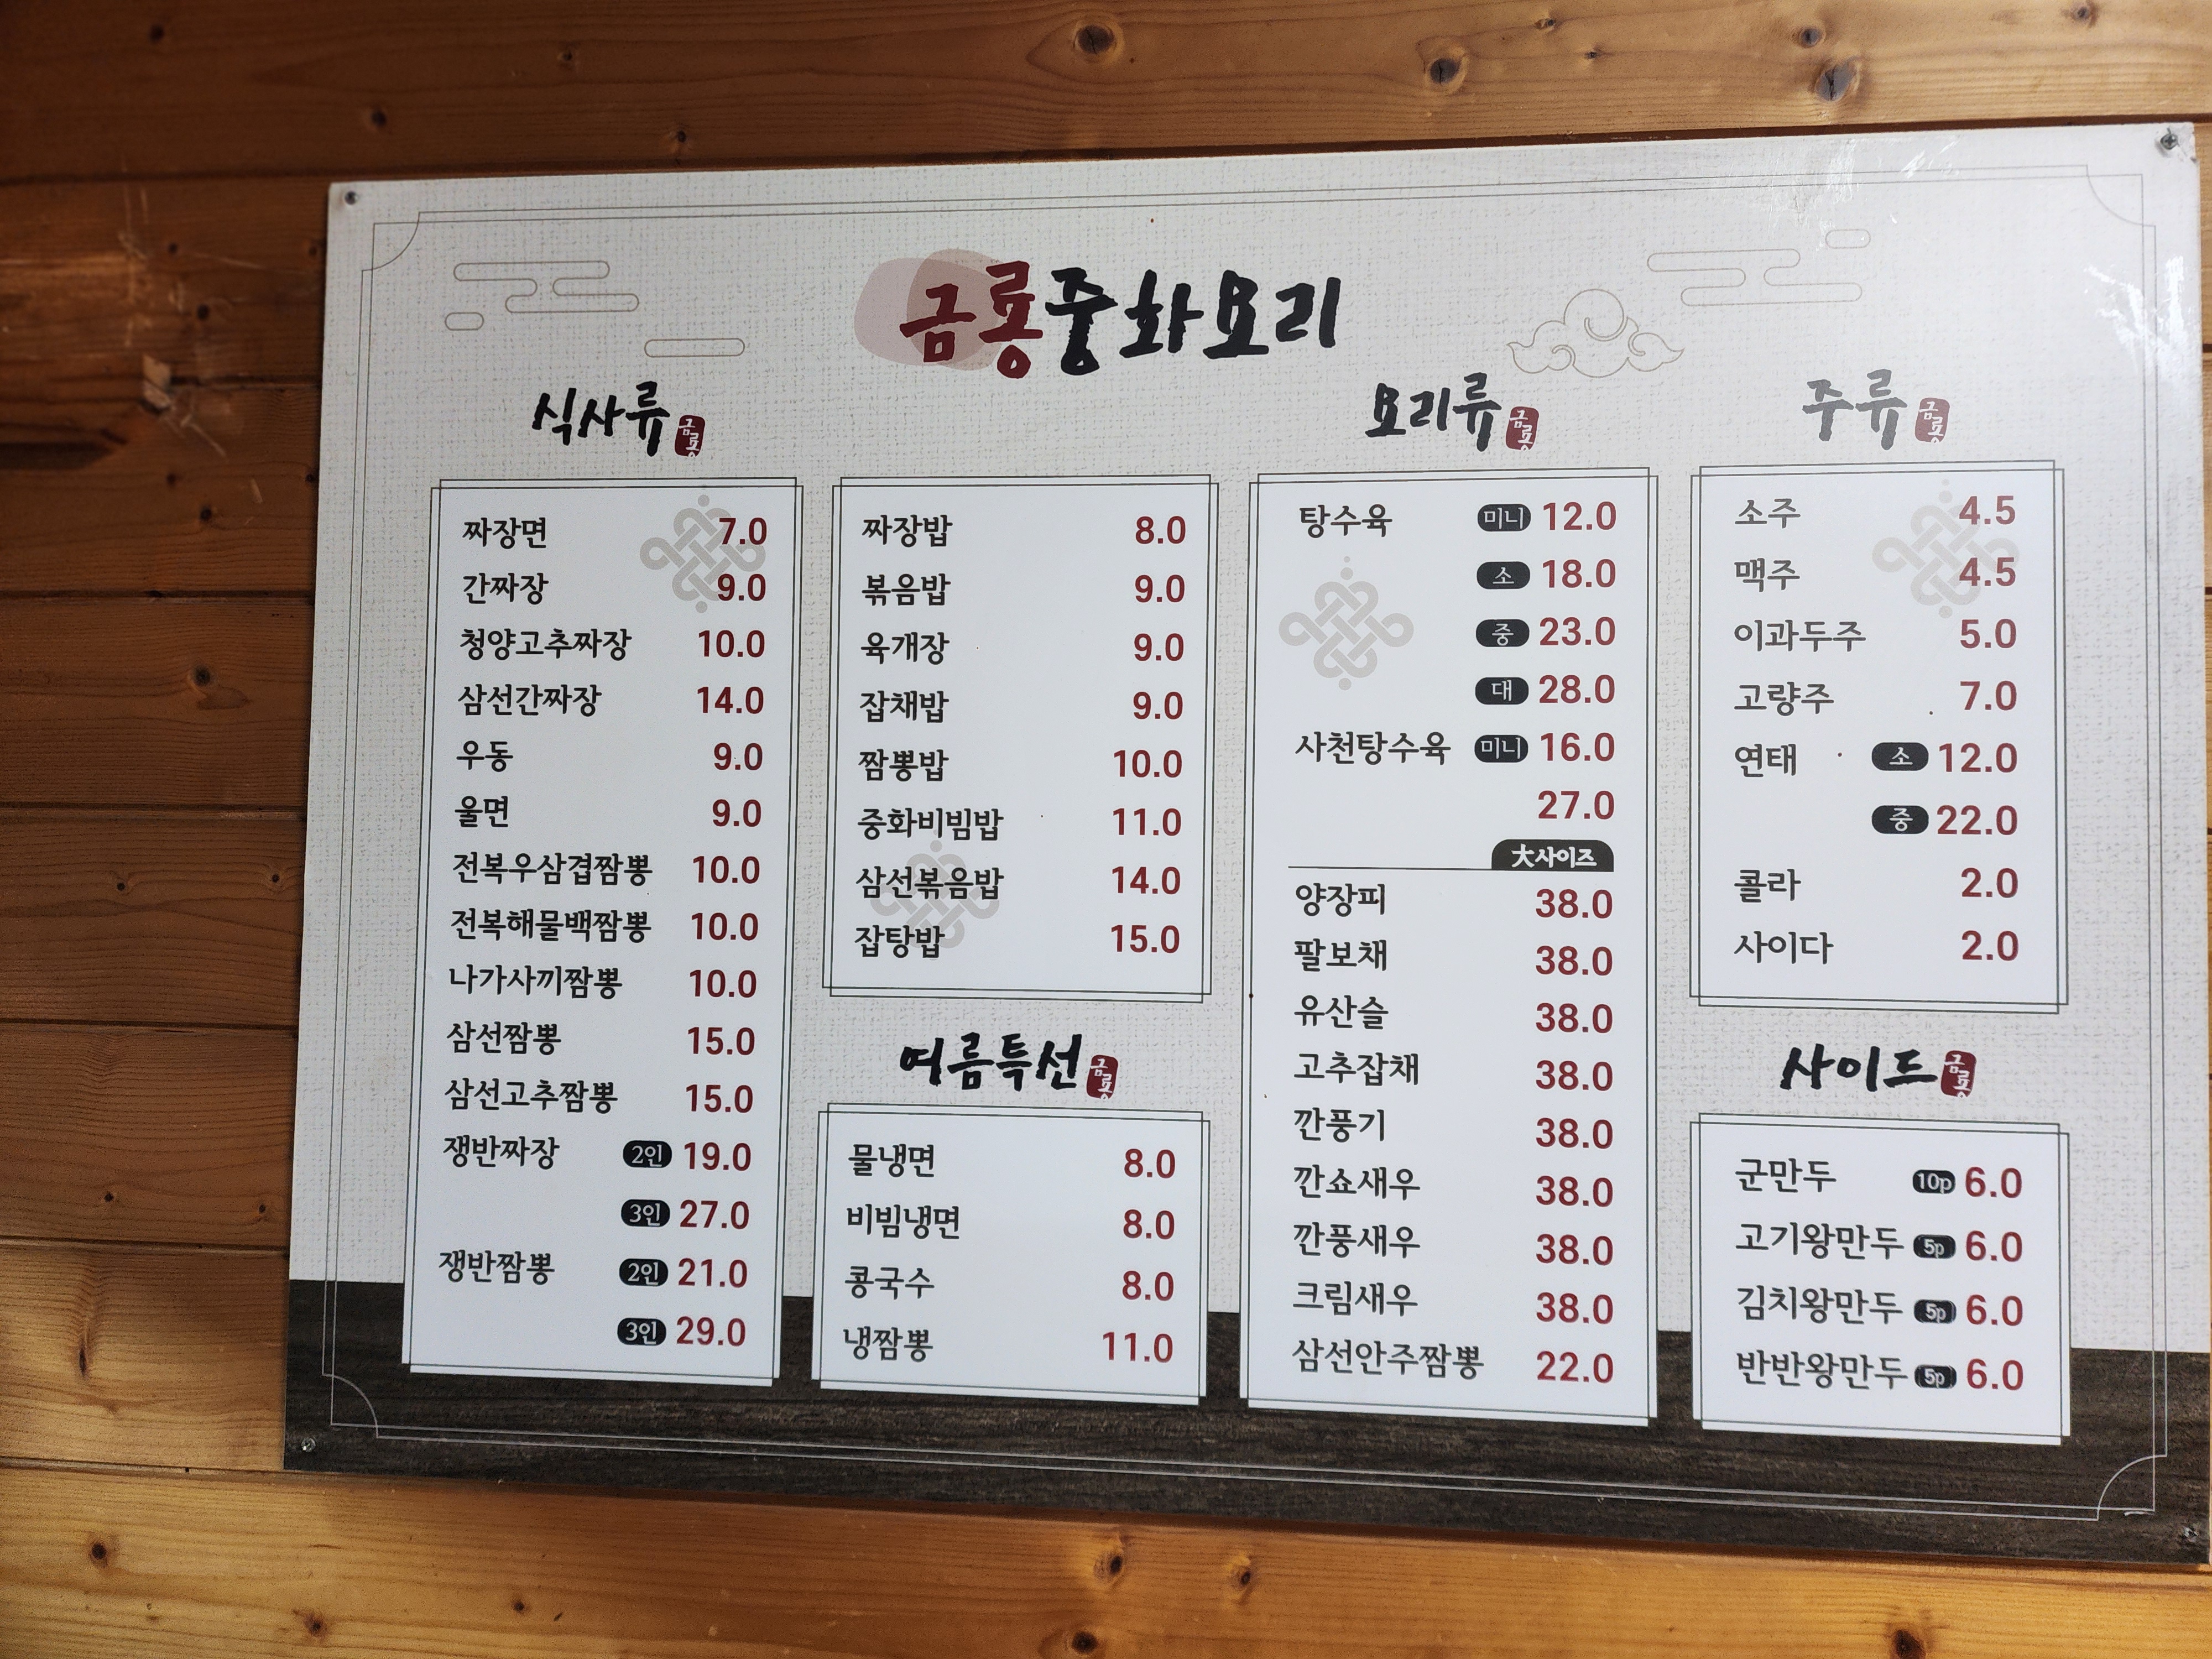 금룡중화요리
식사류 금룡
짜장면 7.0
간짜장 9.0
청양고추짜장 10.0
삼선간짜장 14.0
우동 9.0
울면 9.0
전복우삼겹짬뽕 10.0
전복해물백짬뽕 10.0
나가사끼짬뽕 10.0
삼선짬뽕 15.0
삼선고추짬뽕 15.0
쟁반짜장 2인 19.0
3인 27.0
쟁반짬뽕 2인 21.0
3인 29.0
짜장밥 8.0
볶음밥 9.0
육개장 9.0
잡채밥 9.0
짬뽕밥 10.0
중화비빔밥 11.0
삼선볶음밥 14.0
잡탕밥 15.0
여름특선 금룡
물냉면 8.0
비빔냉면 8.0
콩국수 8.0
냉짬뽕 11.0
요리류 금룡
탕수육 미니 12.0
소 18.0
중 23.0
대 28.0
사천탕수육 미니 16.0
27.0
大사이즈
양장피 38.0
팔보채 38.0
유산슬 38.0
고추잡채 38.0
깐풍기 38.0
깐쇼새우 38.0
깐풍새우 38.0
크림새우 38.0
삼선안주짬뽕 22.0
주류 금룡
소주 4.5
맥주 4.5
이과두주 5.0
고량주 7.0
연태 소 12.0
중 22.0
콜라 2.0
사이다 2.0
사이드 금룡
군만두 10p 6.0
고기왕만두 5p 6.0
김치왕만두 5p 6.0
반반왕만두 5p 6.0